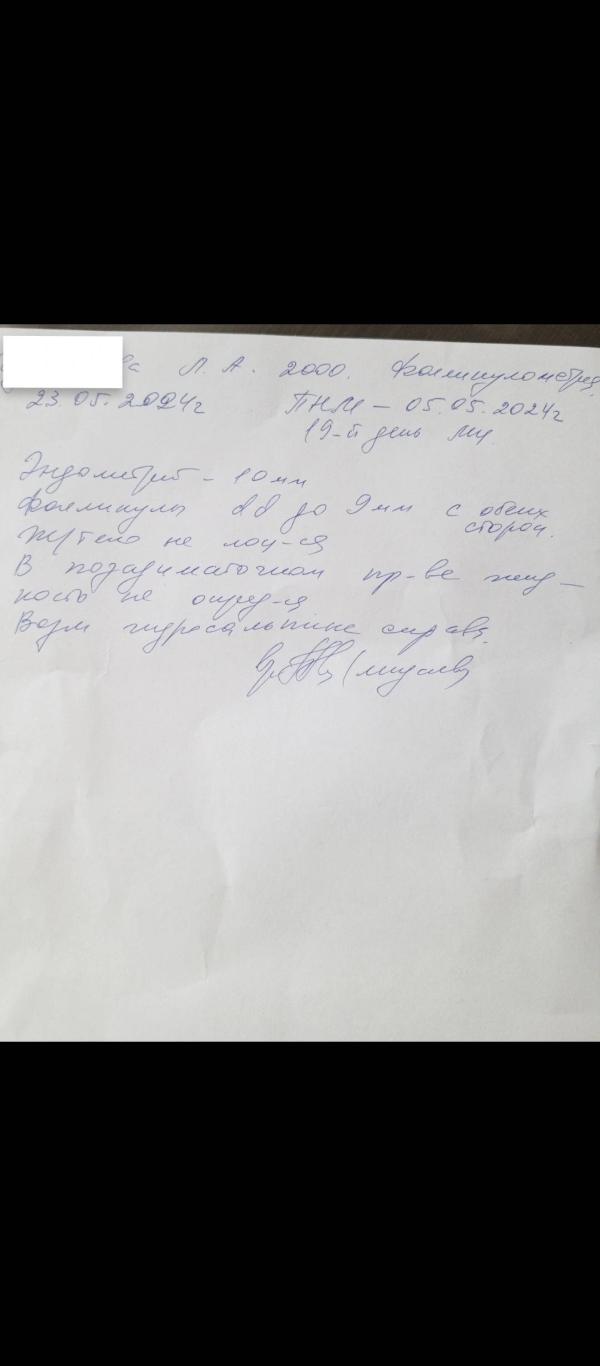 ва Л. А. 2000. Фолликулометрия
23.05.2024г ПНМ – 05.05.2024г
19-й день МЦ.
Эндометрий – 10 мм
Фолликулы dd до 9 мм с обеих
сторон.
Ж/тело не лоц-ся
В позадиматочном пр-ве жид–
кость не опред-ся
Возм гидросальпинкс справа.